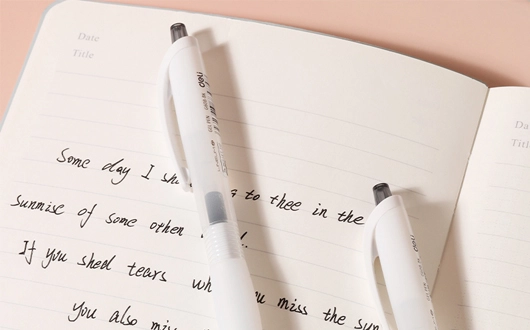 Date
Title
Da
Titl
deli
Some day I sh to thee in the
sunrise of some other
If you shed tears wh you miss the sun
You also mis